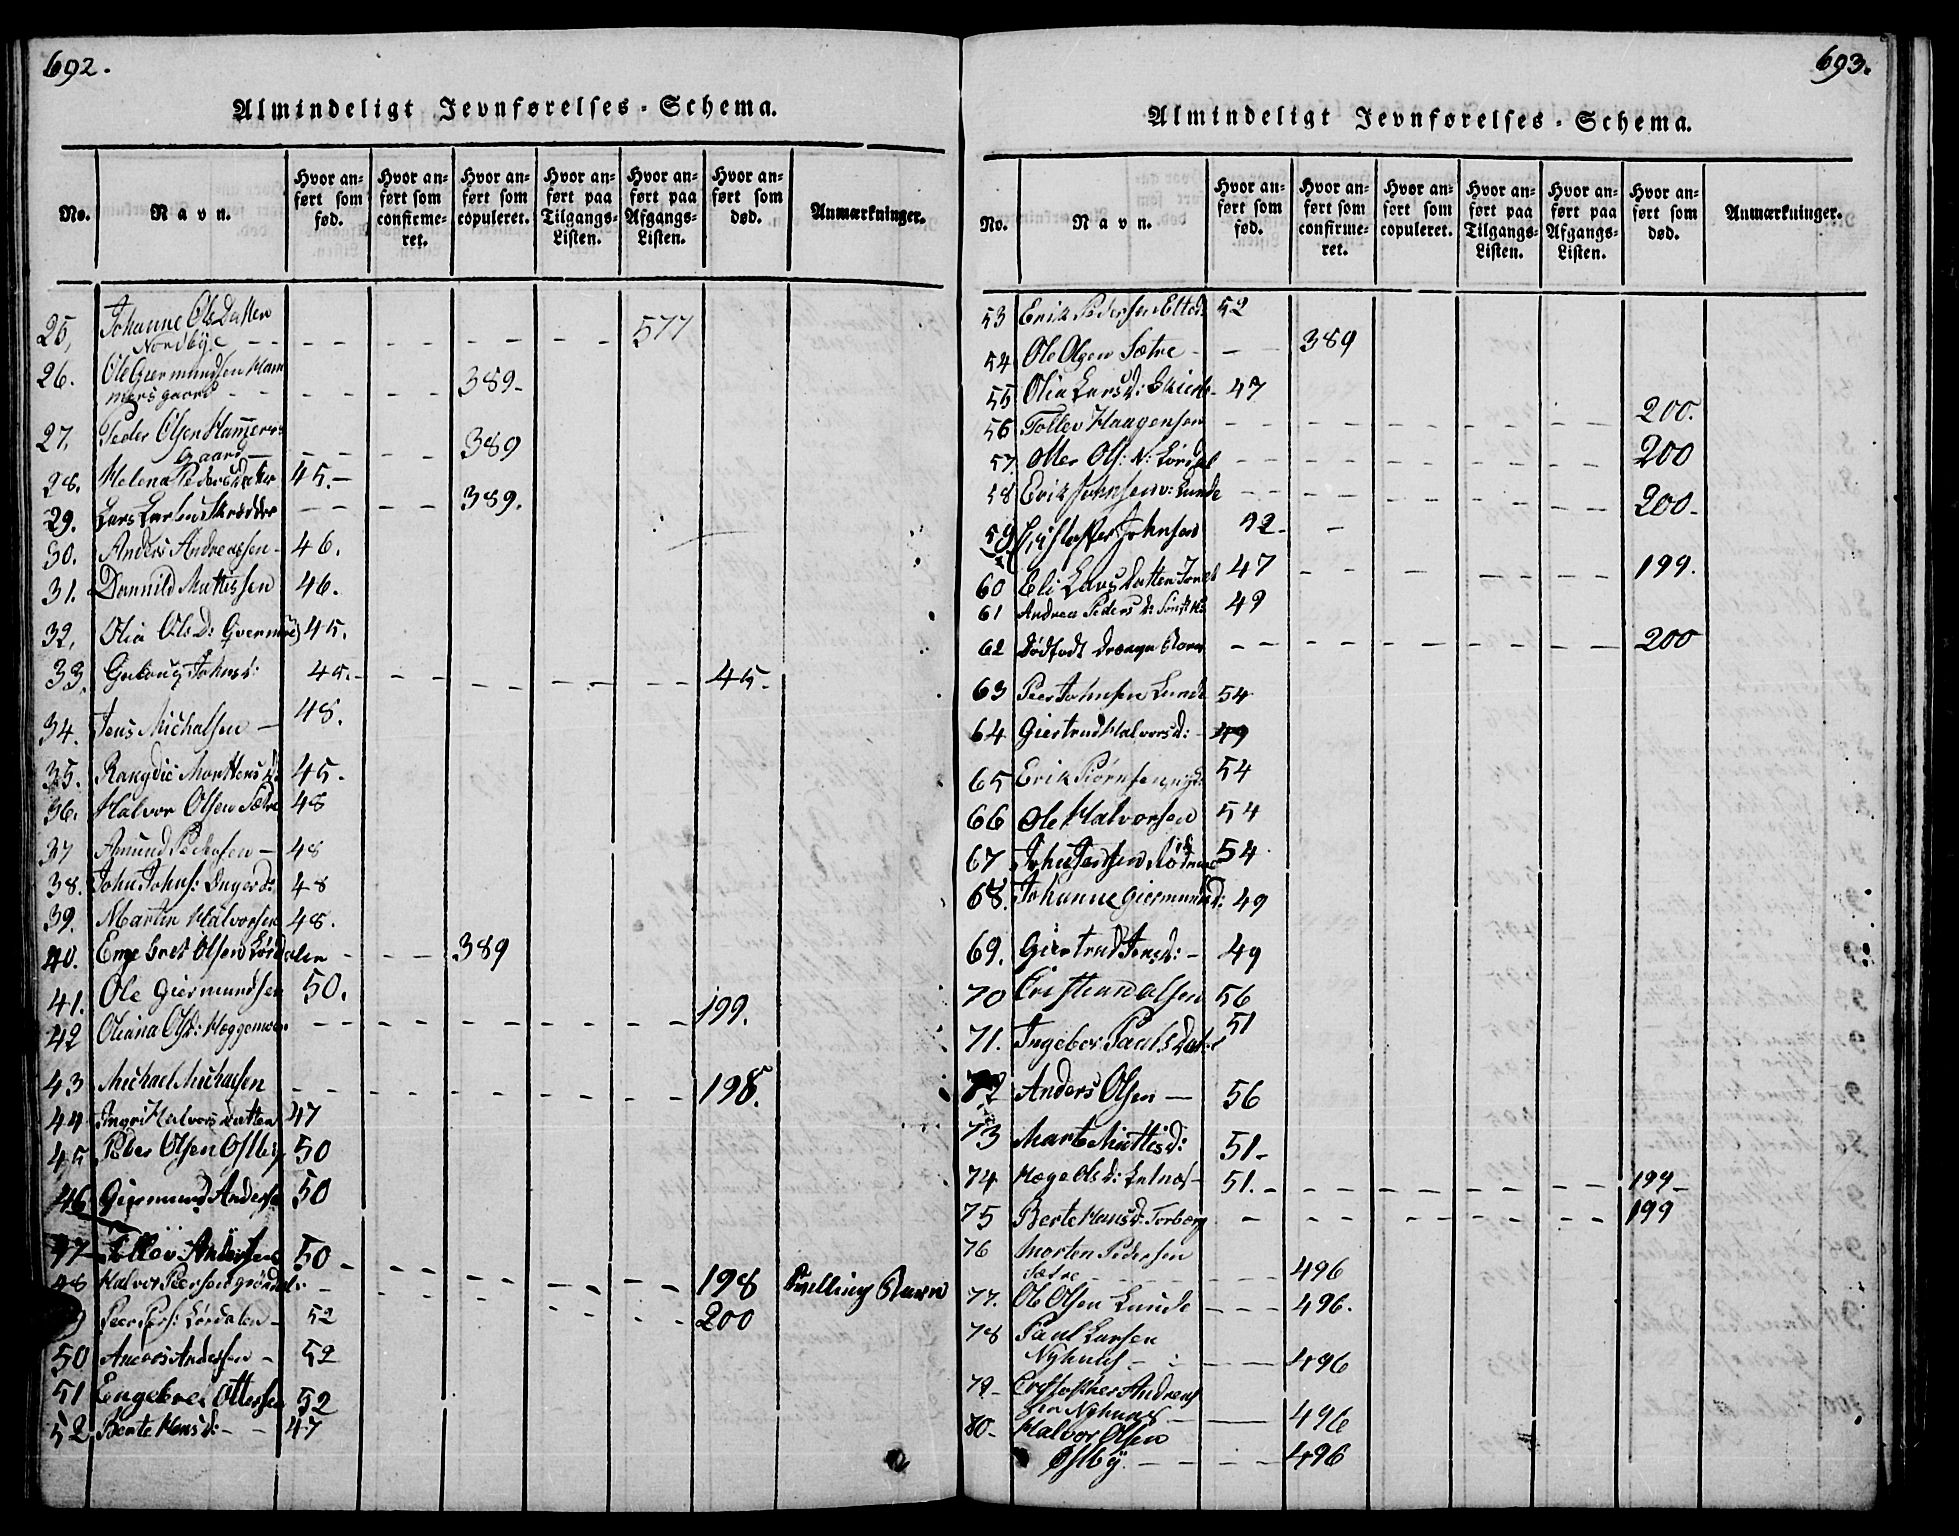 692.
Almindeligt Jevnførelses-Schema.
No. Navn. Hvor anført som født. Hvor anført som confirmeret. Hvor anført som copuleret. Hvor anført paa Tilgangs-Listen. Hvor anført paa Afgangs-Listen. Hvor anført som død. Anmærkninger.
25, Johanne OlsDatter
Nordbÿe - - - - - - - - 577
26. Ole Giermundsen Ham
mersgaard - - - - - 389-
27. Peder Olsen Hammers
gaard - - - - 389
28. Helena Pedersdatter 45.-
29. Lars Larsen Skrædder - - - - 389.
30. Anders Andreassen - 46.
31. Mattissen 46.
32, Olia Olsd: 45.
33. Johnsd: 45.- - - - - - - - - 45.
34. Jens Michalsen - 48.
35. Mortensd 45.
36. Halvor Olsen Sætre 48
37 Amund Pedersen - 48
38. John Johns: 48
39. Marten Halvorsen 48.
40. Olsen Lørdalen - - - 389
41. Ole Giermundsen 50.
42 Oliana Ols: - - - - - - - - 199.
43 Michael Michalsen - - - - - - - - 198.
44 Ingri Halvorsdatter 47
45 Peder Olsen Østbÿ 50
46 Giermund Anders 50
47 Tollov Anders 50 -
48 Halvor Peersen - - - - - - - 198 Tvilling Barn
9 Peer Pers: Lørdalen - 52 - - - - - - 200
50 Anders Andersen - 52
51 Engebret Ottersen 52
52 Berte Hansd: - - 47
693.
Almindeligt Jevnførelses-Schema.
No. Navn. Hvor anført som fød. Hvor anført som confirmeret. Hvor anført som copuleret. Hvor anført paa Tilgangs-Listen. Hvor anført paa Afgangs-Listen. Hvor anført som død. Anmærkninger.
53 Erik Pedersen 52
54 Ole Olsen Sætre - - 389
55 Olia Larsd: 47
56 Tollev Haagensen - - - - - - - 200.
57. Ols: N: - - - - - - - 200
58 Erik Johnsen v: Lunde - - - - - - - 200-
59 Cristopher Johnsen 52- -
60 Eli Larsdatter 47 - - - - - - 199.
61 Andrea Pedersd: 49
62 Dødfødt Drenge Barn - - - - - - - 200
63 Peer Johnsen Lunde 54
64 Giertrud Halvorsd: - 49
65 Erik 54
66 Ole Halvorsen 54
67 John Jensen 54
68. Johanne Giermundd: 49
69. Giertrud Jensd: - 49
70 Cristian Olsen 56
71. Ingebor Pauls Dat 51
72 Anders Olsen - 56
73 Marte Mattisd: 51-
74 Olsd: 51. - - - - - - - - 199-
75 Berte Hansd: Torberg - - - - - - - 199
76 Morten Pedersen
Sætre - - - - 496
77. Ole Olsen Lunde - - - 496.
78 Paul Larsen
Nÿhuus - - - - 496
79- Cristopher Andreas
sen Nÿhuus - - 496
80- Halvor Olsen
Østbÿ. - - - - 496